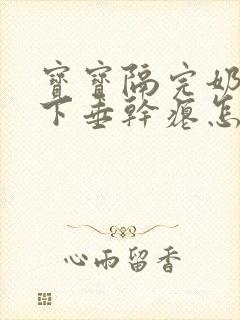 寶寶隔完奶
下垂幹癟怎
心雨留香